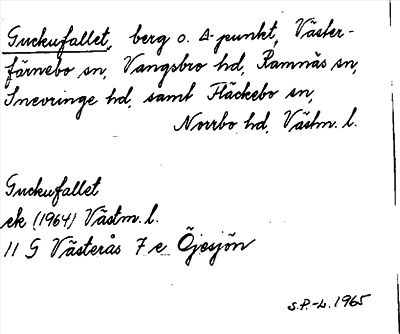 Guckufallet, berg o. Δ-punkt, Väster-
färnebo sn, Vangsbro hd, Ramnäs sn,
Snevringe hd, samt Fläckebo sn,
Norrbo hd, Västm. l.
Guckufallet
ek (1964) Västm. l.
11 G Västerås 7 e Öjesjön
S.P.-L. 1965